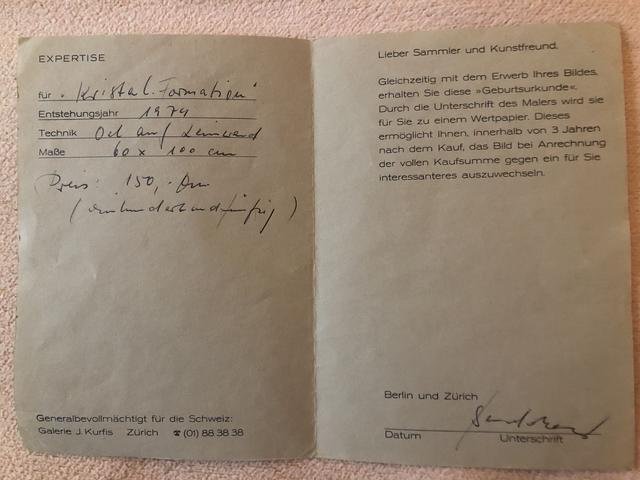 EXPERTISE
für „Kristal-Formation“
Entstehungsjahr 1974
Technik Oel auf Leinwand
Maße 60 x 100 cm
Preis: 150,- Dm
(einhundertundfünfzig)
Generalbevollmächtigt für die Schweiz:
Galerie J. Kurfis Zürich ☎ (01) 88 38 38
Lieber Sammler und Kunstfreund,
Gleichzeitig mit dem Erwerb Ihres Bildes,
erhalten Sie diese »Geburtsurkunde«.
Durch die Unterschrift des Malers wird sie
für Sie zu einem Wertpapier. Dieses
ermöglicht Ihnen, innerhalb von 3 Jahren
nach dem Kauf, das Bild bei Anrechnung
der vollen Kaufsumme gegen ein für Sie
interessanteres auszuwechseln.
Berlin und Zürich
Datum Unterschrift